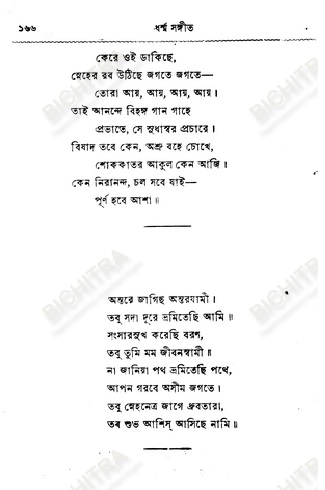 ১৬৬ ধর্ম্ম সঙ্গীত
কেরে ওই ডাকিছে,
স্নেহের রব উঠিছে জগতে জগতে—
তোরা আয়, আয়, আয়, আয়।
তাই আনন্দে বিহঙ্গ গান গাহে
প্রভাতে, সে সুধাস্বর প্রচারে।
বিষাদ তবে কেন, অশ্রু বহে চোখে,
শোককাতর আকুল কেন আজি॥
কেন নিরানন্দ, চল সবে যাই—
পূর্ণ হবে আশা॥
অন্তরে জাগিছ অন্তরযামী।
তবু সদা দূরে ভ্রমিতেছি আমি॥
সংসারসুখ করেছি বরণ,
তবু তুমি মম জীবনস্বামী॥
না জানিয়া পথ ভ্রমিতেছি পথে,
আপন গরবে অসীম জগতে।
তবু স্নেহনেত্র জাগে ধ্রুবতারা,
তব শুভ আশিস্ আসিছে নামি॥
BICHITRA
BICHITRA
BICHITRA
BICHITRA
BICHITRA